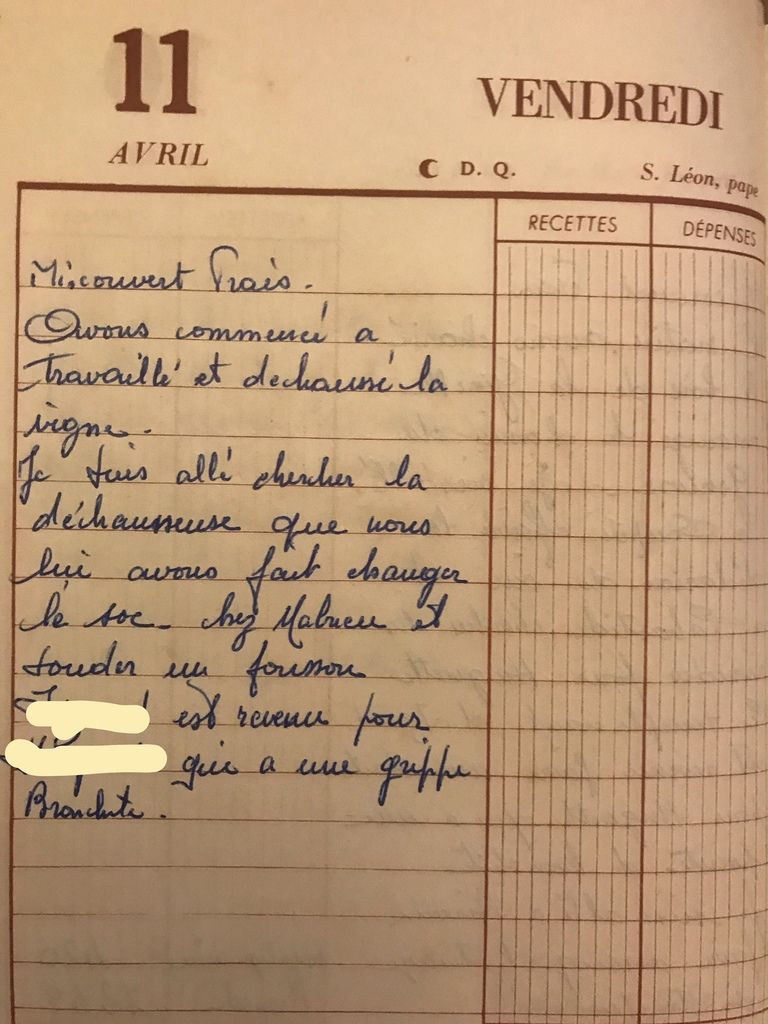 11
VENDREDI
AVRIL
D. Q.
S. Léon, pape
RECETTES
DÉPENSES
Mi couvert Frais.
Avons commencé a
Travaillé et dechaussé la
vigne.
Je suis allé chercher la
déchausseuse que nous
lui avons fait changer
le soc. chez et
souder un
est revenu pour
qui a une grippe
Bronchite.